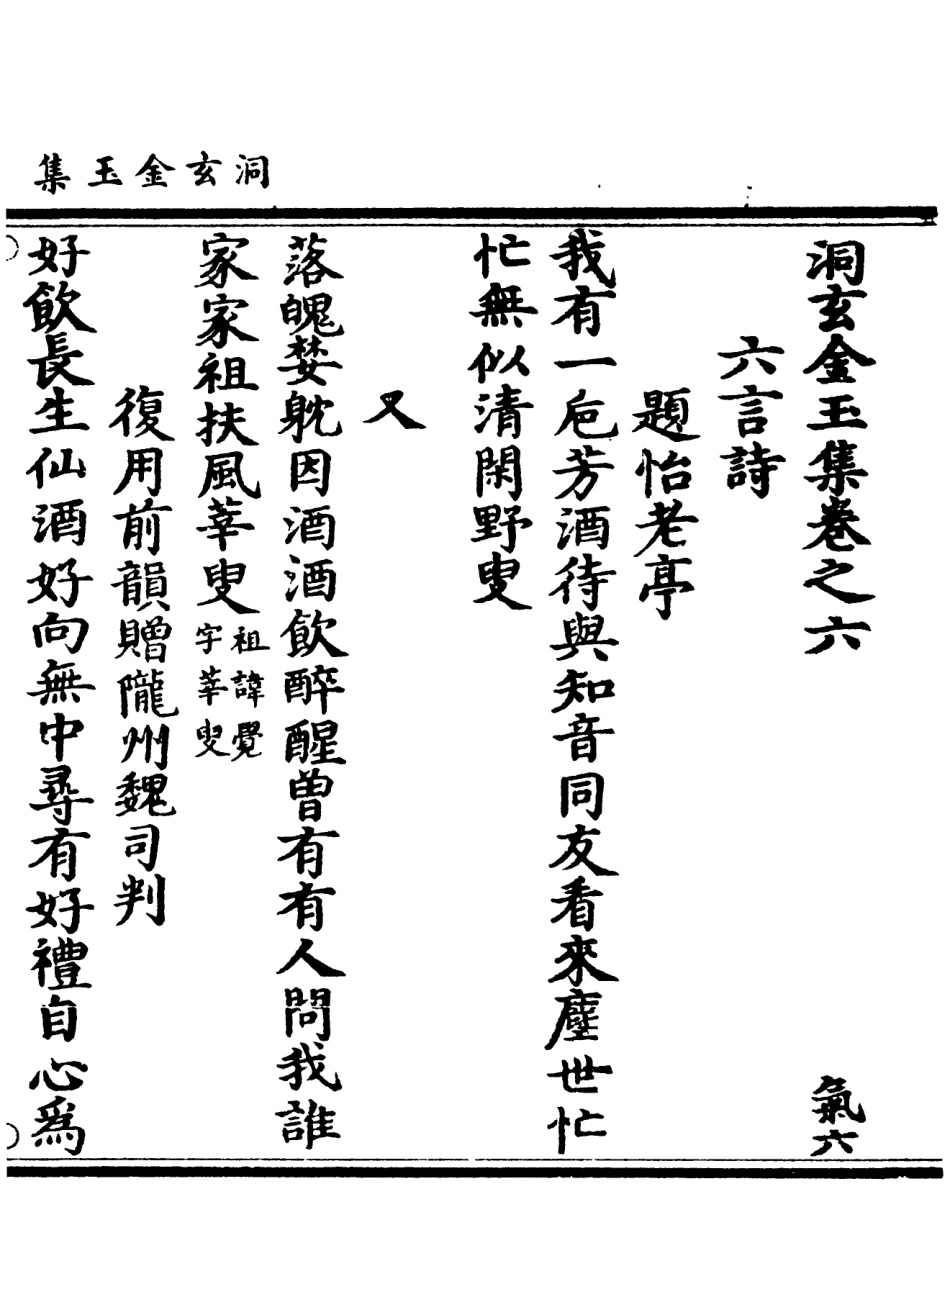 洞玄金玉集
洞玄金玉集卷之六 氣六
六言詩
題怡老亭
我有一卮芳酒待與知音同友看來塵世忙
忙無似清閑野叟
又
落魄婪躭因酒酒飲醉醒曾有有人問我誰
家家祖扶風莘叟祖諱覺
字莘叟
復用前韻贈隴州魏司判
好飲長生仙酒好向無中尋有好禮自心爲